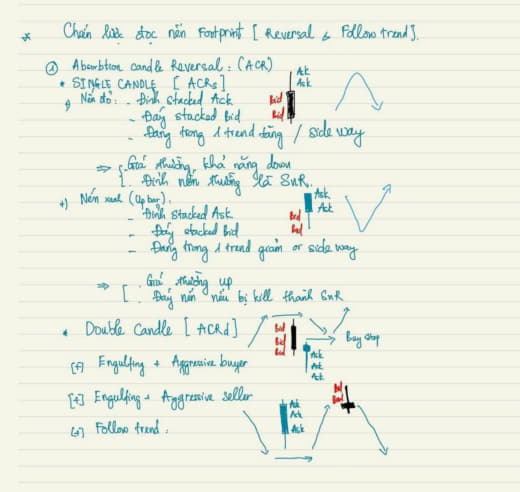 * Chiến lược đọc nến Footprint [ Reversal & Follow trend].
① Absorbtion candle Reversal : (ACR)
* SINGLE CANDLE [ ACRs ]
Nến đỏ : - Đỉnh stacked Ack
- Đáy stacked Bid
- Đang trong 1 trend tăng / side way
Ack
Ask
Bid
Bid
⇒ Giá thường khả năng down
Đỉnh nến thường là SnR.
+) Nến xanh (Up bar) :
- Đỉnh Stacked Ask.
- Đáy stacked Bid
- Đang trong 1 trend giảm or side way
Ask
Ack
Bid
Bid
⇒ [ . Giá thường up
. Đáy nến nếu bị kill thành SnR
* Double Candle [ ACRd ]
Bid
Bid
Bid
Buy stop
Ack
Ack
Ack
[+] Engulfing + Aggressive buyer
[+] Engulfing + Aggressive seller
[+] Follow trend :
Ack
Ack
Ask
Bid
Bid